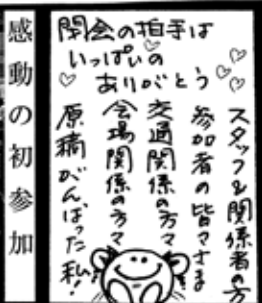 感動の初参加
閉会の拍手は
いっぱいの
ありがとう♡
スタッフ&関係者の方
参加者の皆さま
交通関係の方々
会場関係の方々
原稿がんばった私!